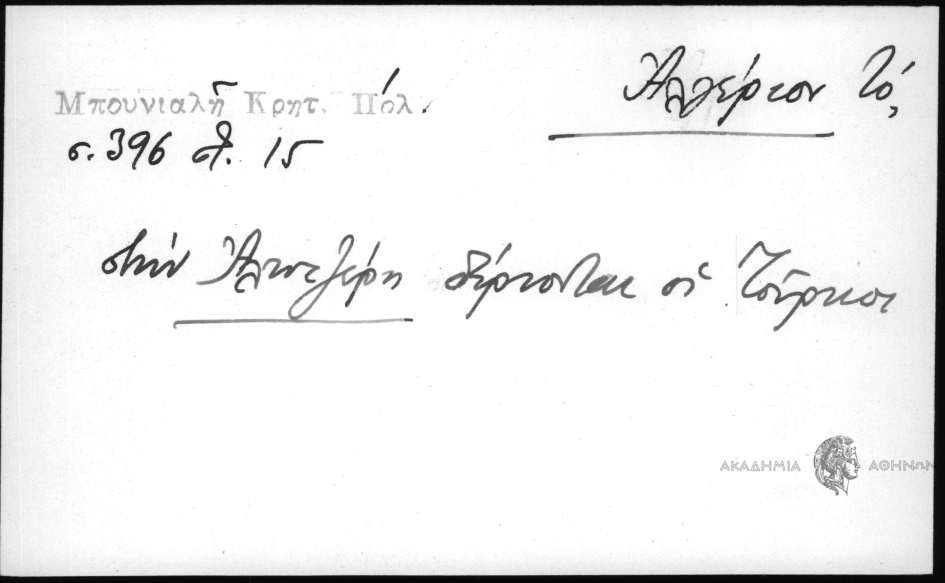 Ἀλγέριον τό,
Μπουνιαλῆ Κρητ. Πόλ.
σ. 396 στ. 15
στὴν Ἀλιτζέρι σέρνονται οἱ Τοῦρκοι
ΑΚΑΔΗΜΙΑ ΑΘΗΝΩΝ